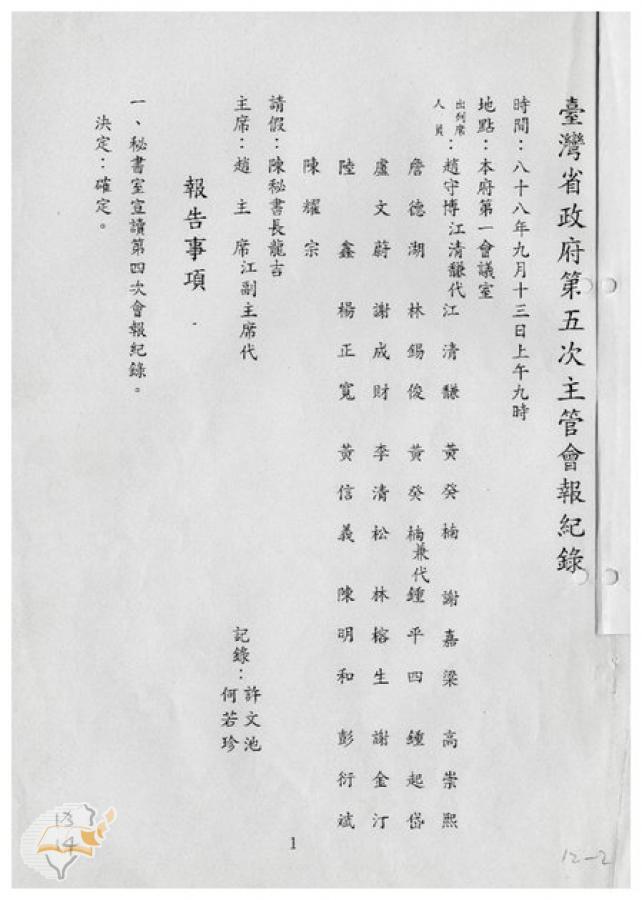 臺灣省政府第五次主管會報紀錄
時間：八十八年九月十三日上午九時
地點：本府第一會議室
出列席人員：趙守博江清馦代 江清馦 黃癸楠 謝嘉梁 高崇熙
詹德湖 林錫俊 黃癸楠兼代 鍾平四 鍾起岱
盧文蔚 謝成財 李清松 林榕生 謝金汀
陸鑫 楊正寬 黃信義 陳明和 彭衍斌
陳耀宗
請假：陳秘書長龍吉
主席：趙主席江副主席代
記錄：許文池
何若珍
報告事項
一、秘書室宣讀第四次會報紀錄。
決定：確定。
1
13
14
12-2